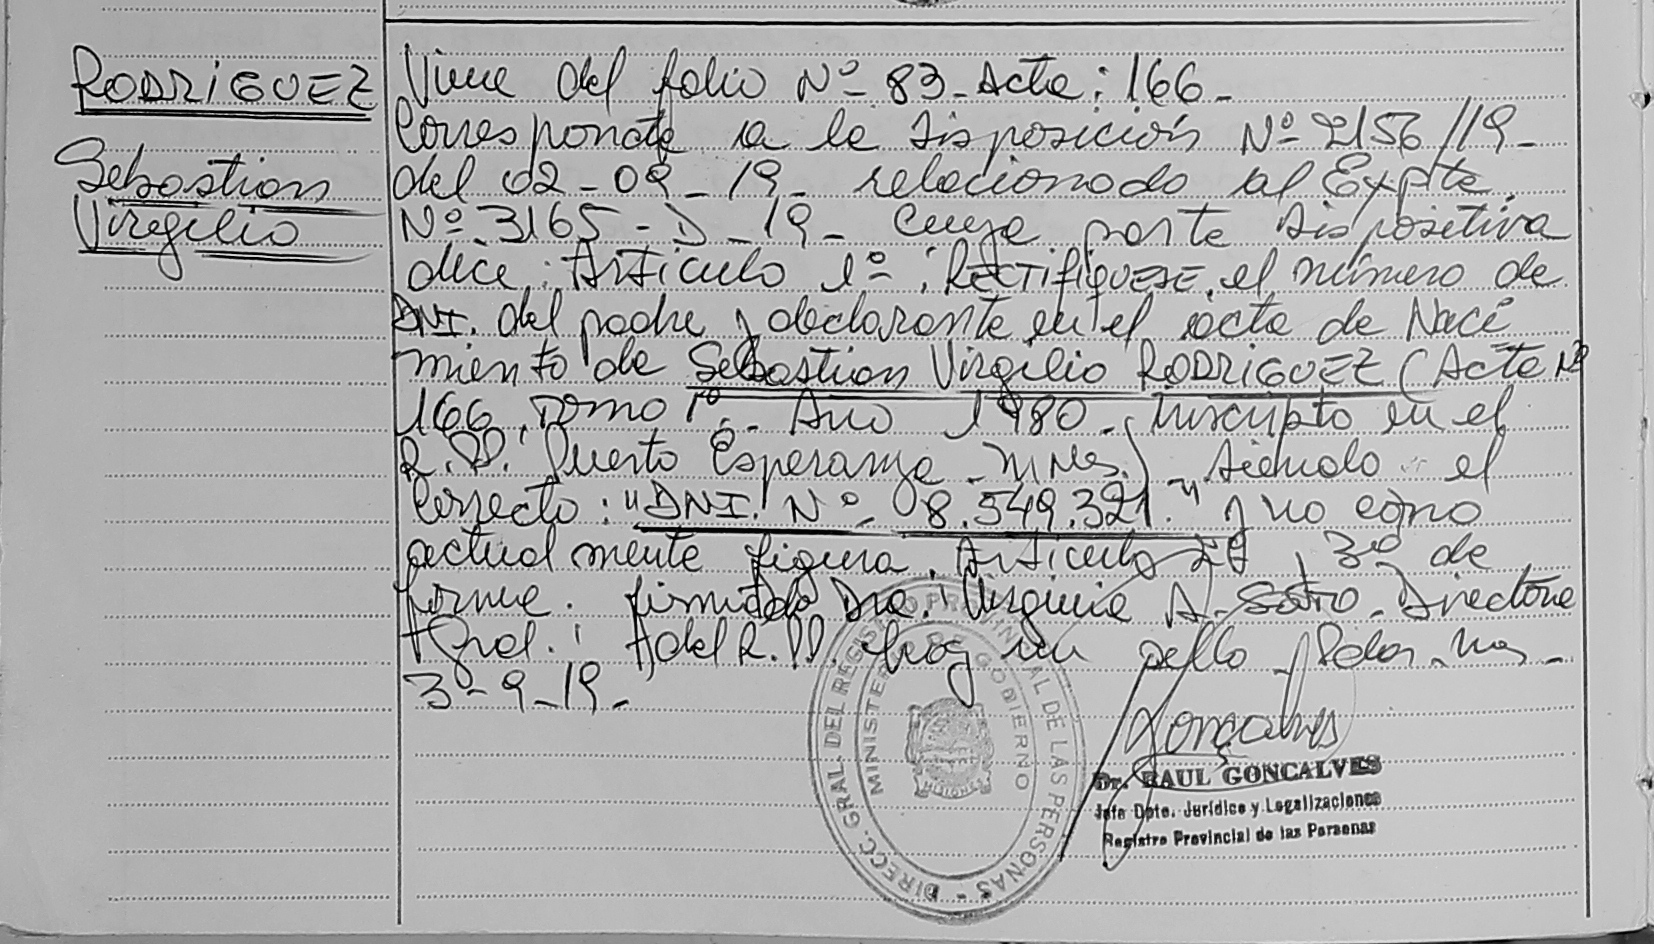 RODRIGUEZ
Sebastian
Virgilio
Viene del folio Nº 83 - Acta: 166 -
Corresponde a la Disposición Nº 2156/19 -
del 02-09-19 - relacionado al Expte.
Nº 3165 - D - 19 - cuya parte dispositiva
dice: Artículo 1º: RECTIFIQUESE, el número de
DNI. del padre y declarante en el acta de Naci
miento de Sebastian Virgilio RODRIGUEZ (Acta Nº
166, Tomo 1º - Año 1980. Inscripto en el
R.P. Puerto Esperanza - Mnes.) siendo el
correcto: "DNI. Nº 08.549.321." y no como
actualmente figura. Artículo 2º, 3º de
forma. firmado Dra. Virginia A. Sotro - Directora
Gral. del R.P. hay un sello - Pdas. Mnes -
3-9-19 -
DIRECC. GRAL. DEL REGISTRO PROVINCIAL DE LAS PERSONAS
MINISTERIO DE GOBIERNO
MISIONES
Goncalves
Dr. RAUL GONCALVES
Jefe Dpto. Jurídico y Legalizaciones
Registro Provincial de las Personas